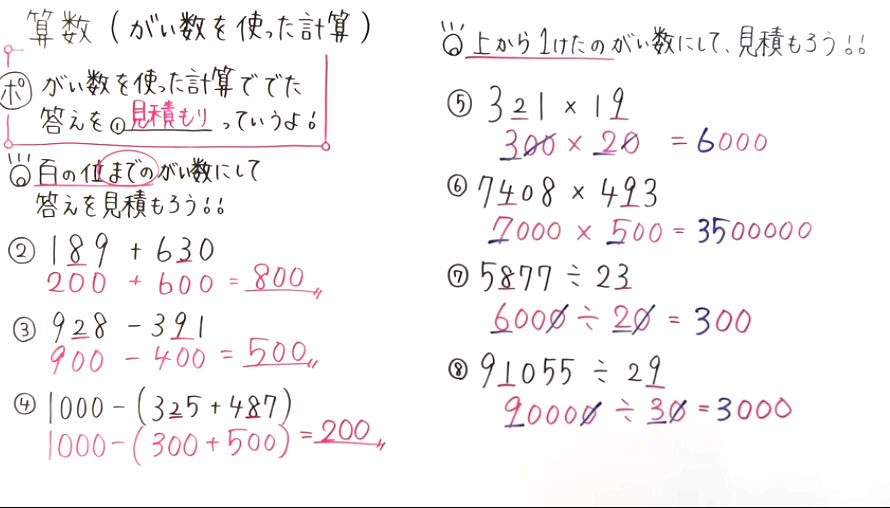 算数(がい数を使った計算)
ポ がい数を使った計算ででた
答えを①見積もりっていうよ!
百の位までのがい数にして
答えを見積もろう!!
② 189 + 630
200 + 600 = 800
③ 928 - 391
900 - 400 = 500
④ 1000 - (325 + 487)
1000 - (300 + 500) = 200
上から1けたのがい数にして、見積もろう!!
⑤ 321 × 19
300 × 20 = 6000
⑥ 7408 × 493
7000 × 500 = 3500000
⑦ 5877 ÷ 23
6000 ÷ 20 = 300
⑧ 91055 ÷ 29
90000 ÷ 30 = 3000